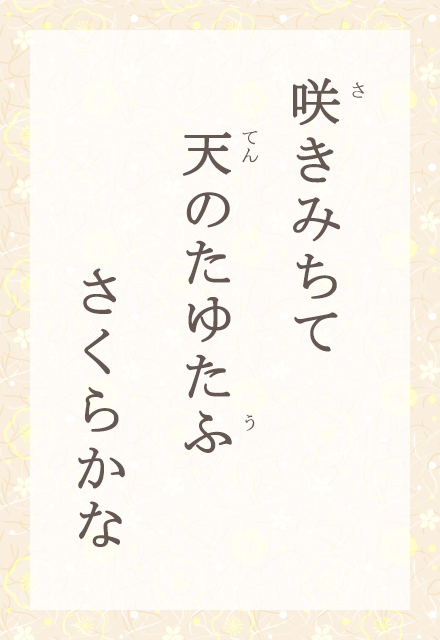 咲きみちて
天のたゆたふ
さくらかな
さ
てん
う